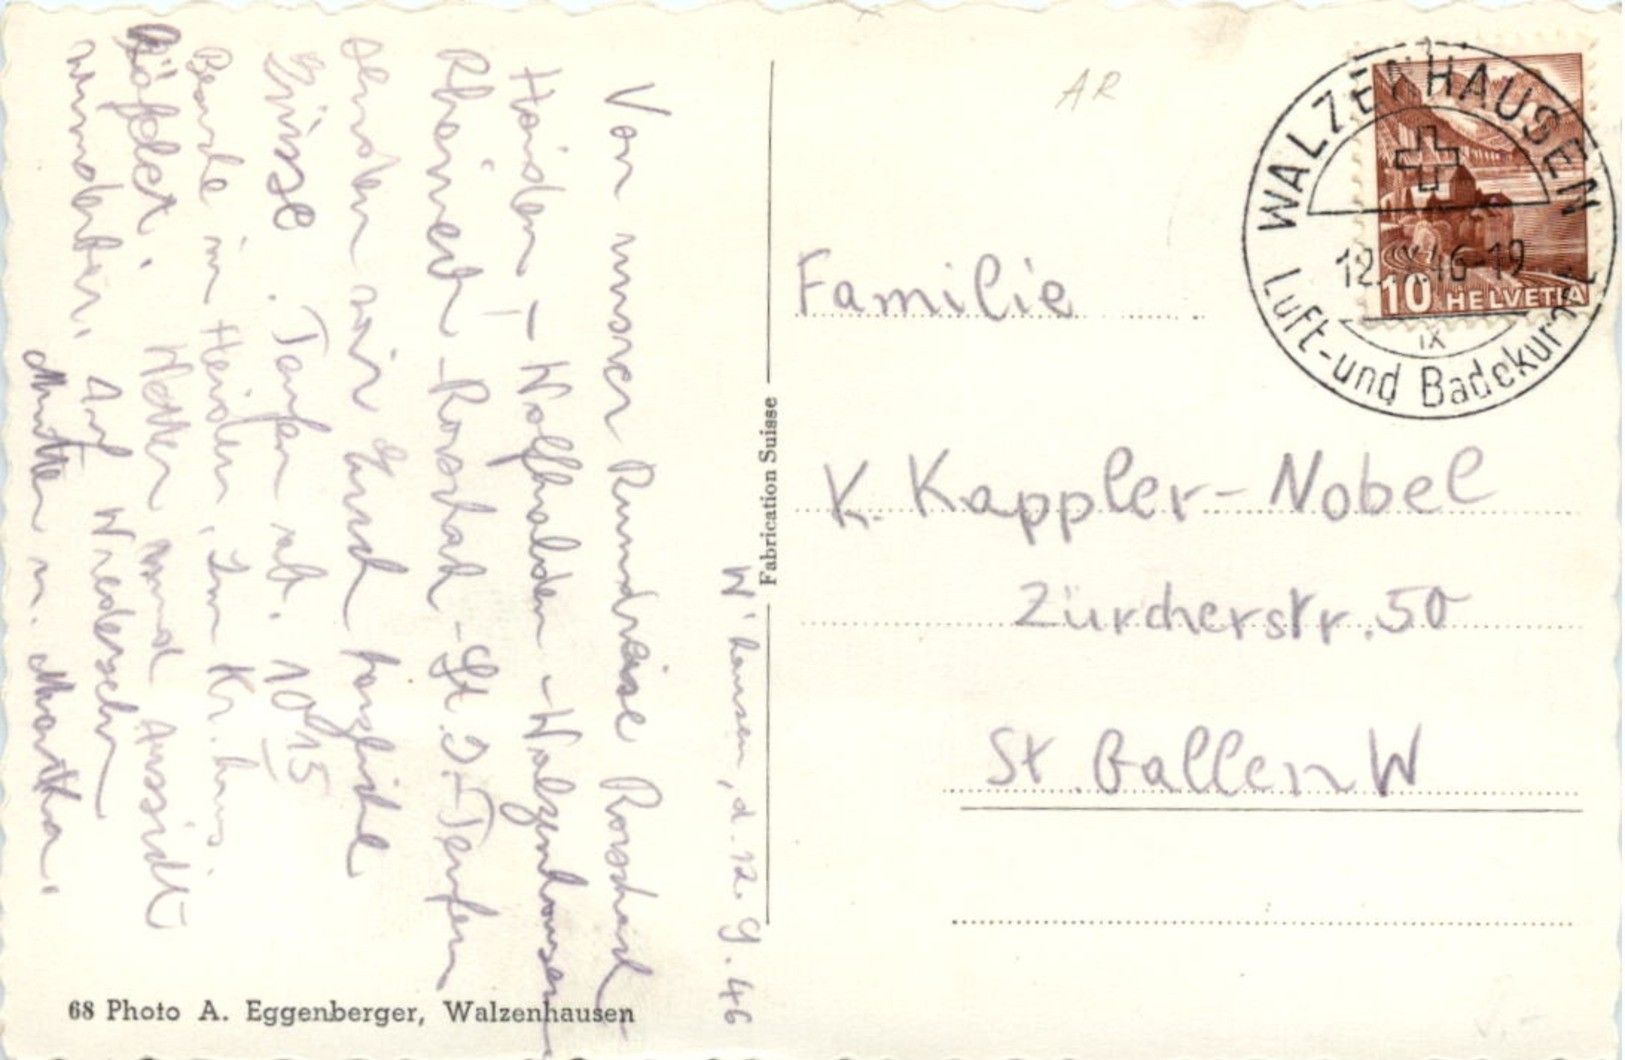 W'hausen, d. 12. 9. 46
Von unserer Rundreise Rorschach
Heiden - Wolfhalden - Walzenhausen
Rheineck - Rorschach - St. G - Teufen
senden wir Euch herzliche
Grüsse. Teufen ab. 10 15
Beade in Heiden, Im Kr. haus
Wetter und Aussicht
wunderbar. Auf Wiedersehn
Mutter u. Martha.
68 Photo A. Eggenberger, Walzenhausen
Fabrication Suisse
AR
WALZENHAUSEN
12. IX. 46-19
IX
Luft-und Badekurort
10 HELVETIA
Familie
K. Kappler-Nobel
Zürcherstr. 50
St. Gallen W